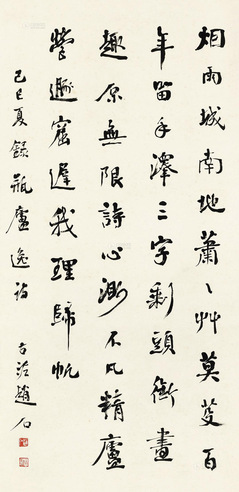 烟雨城南地蕭〻艸莫芟百
年留手澤三字剩頭銜畫
趣原無限詩心渺不凡精廬
營邃窟遲我理歸帆
己巳夏錄瓶廬逸詩 古泥趙石